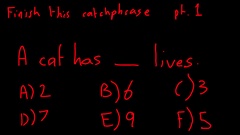 Finish this catchphrase pt. 1
A cat has __ lives.
A) 2 B) 6 C) 3
D) 7 E) 9 F) 5